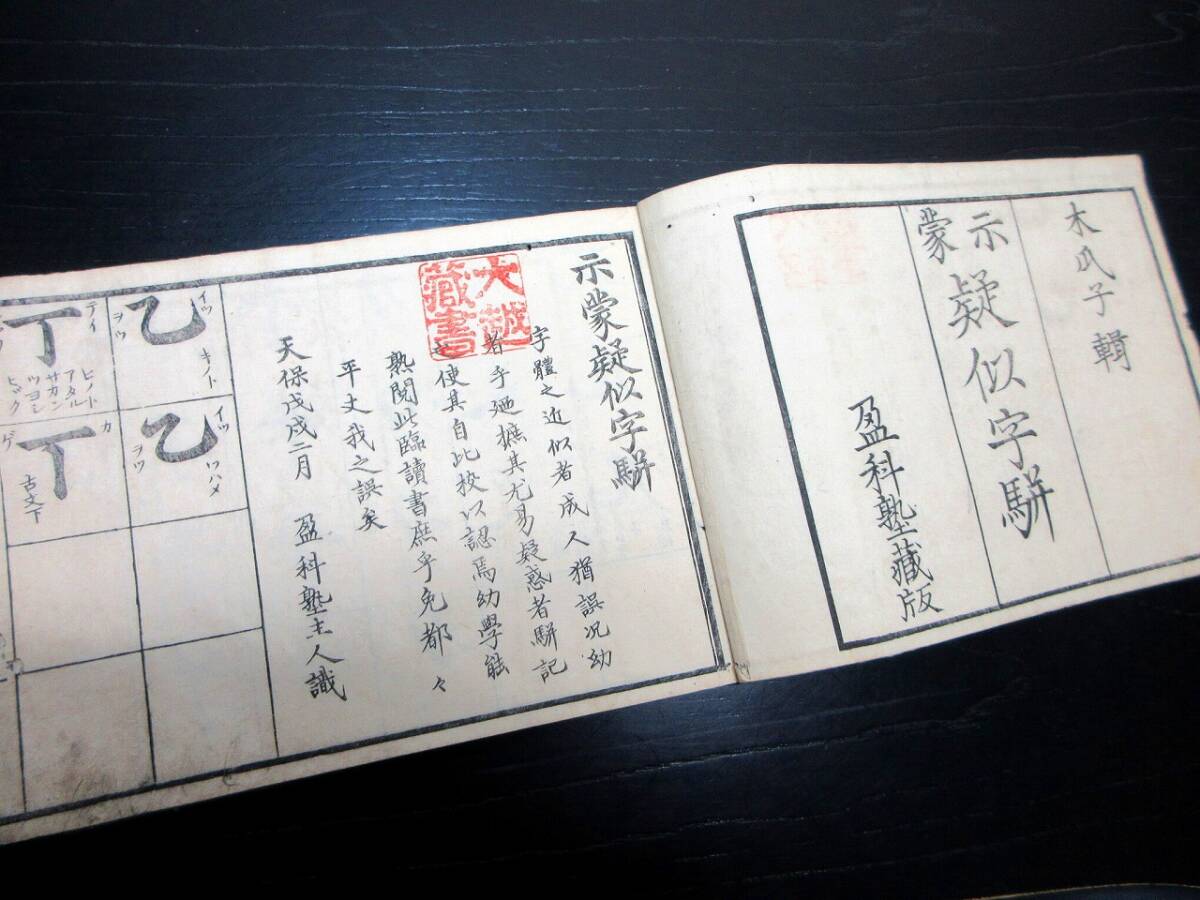 木氏子輯
示蒙 疑似字駢
盈科塾藏版
示蒙疑似字駢
字體之近似者成人猶誤况幼
者乎廼摭其尤易疑惑者駢記
使其自此挍以認焉幼學能
熟閲此臨讀書庶乎免都々
平丈我之誤矣
天保戊戌二月 盈科塾主人識
大越
藏書
乙
イツ
ヲツ
キノト
乙
イツ
ヲツ
ワハメ
丁
テイ
ヒノト
アタル
サカン
ツヨシ
ヒック
丅
カ
ゲ
古文下